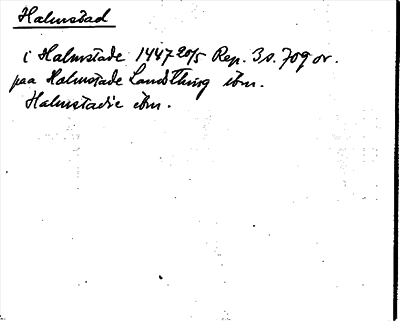 Halmstad
i Halmstade 1447 20/5 Rep. 3 s. 709 or.
paa Halmstade Landthing ibm.
Halmstadie ibm.